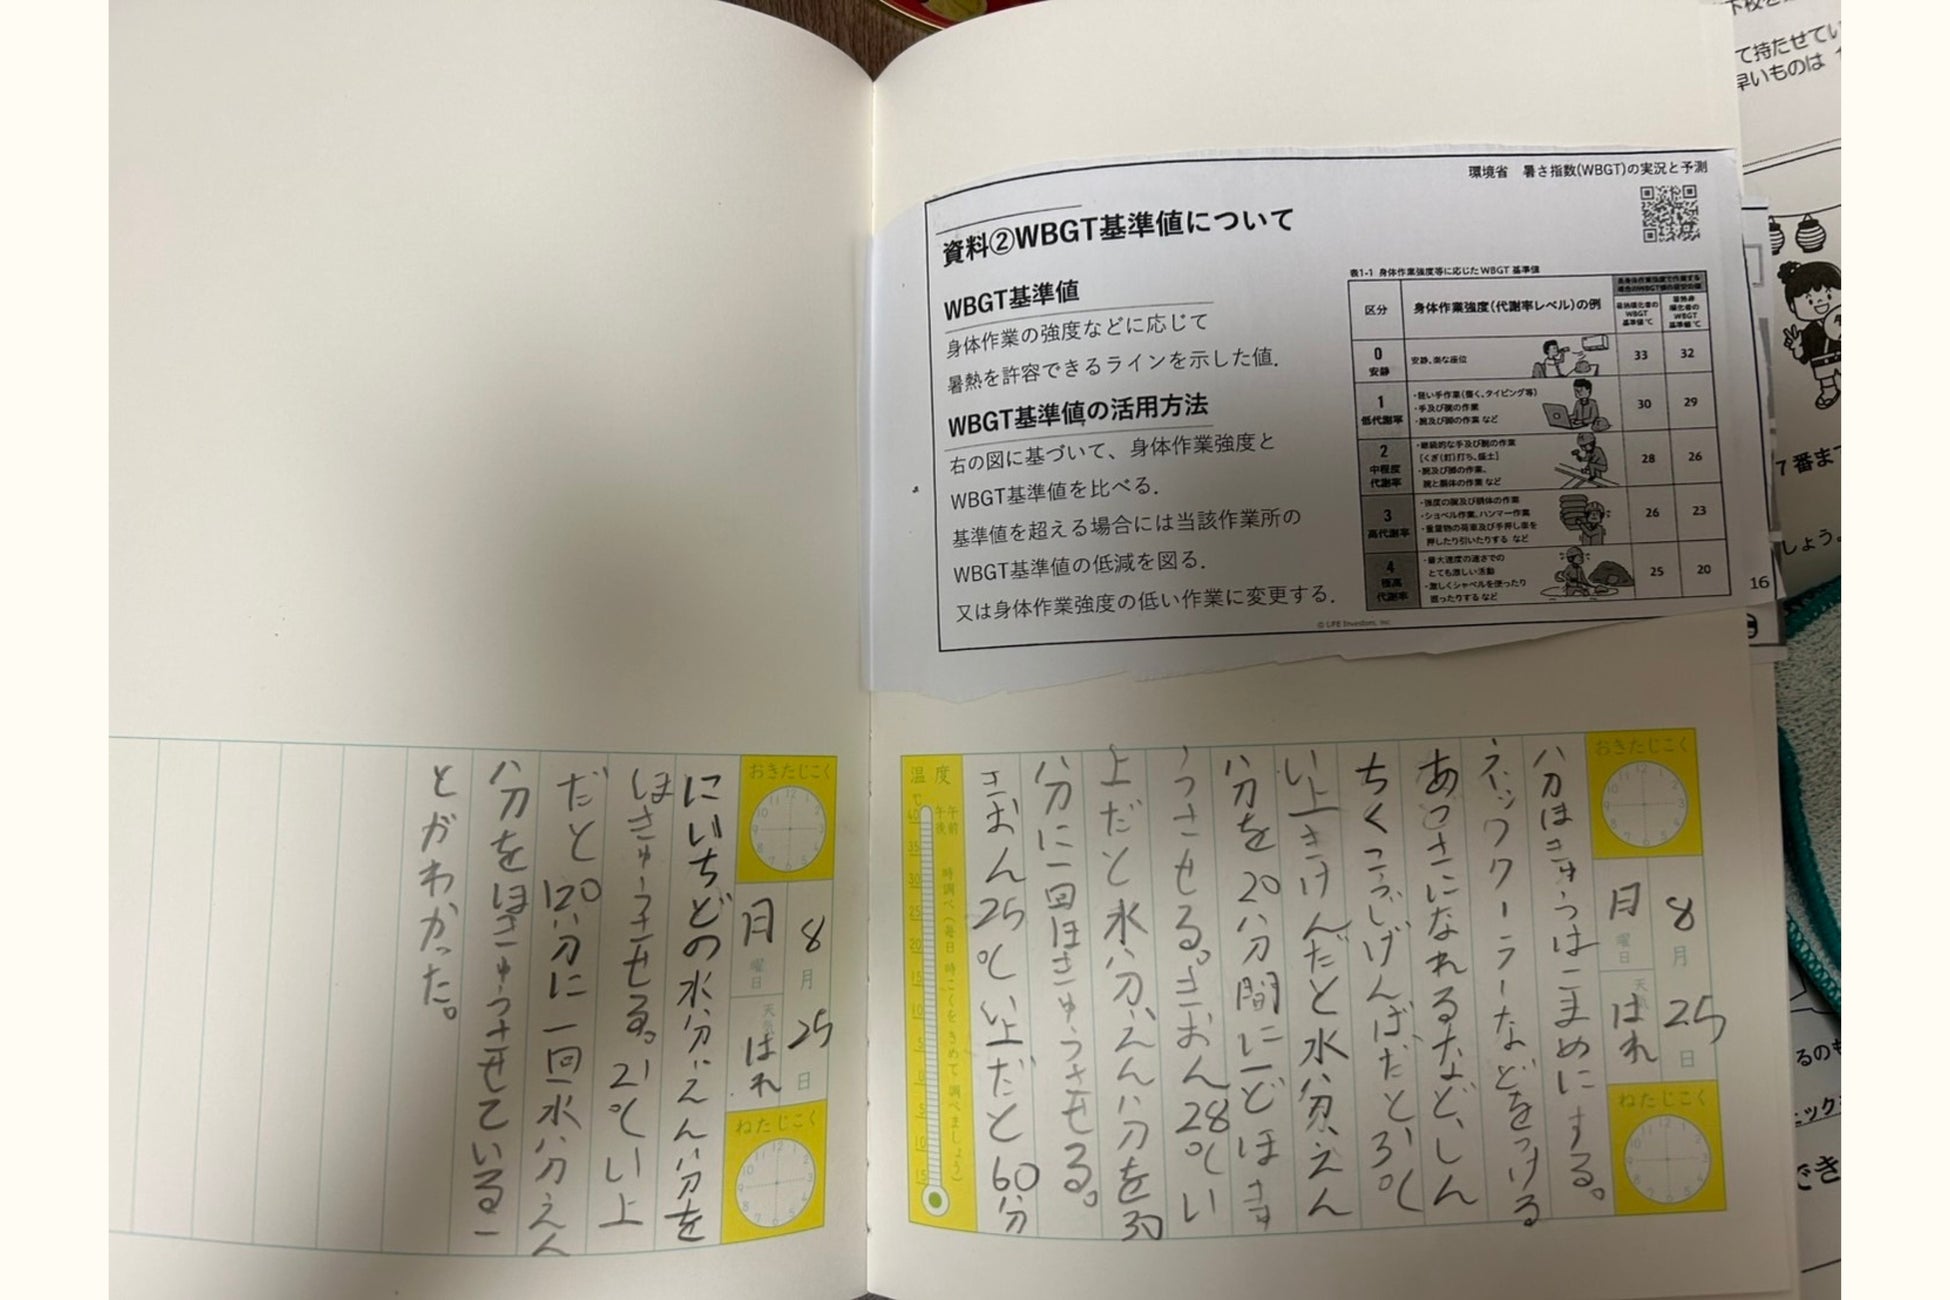 環境省 暑さ指数(WBGT)の実況と予測
資料②WBGT基準値について
WBGT基準値
身体作業の強度などに応じて
暑熱を許容できるラインを示した値.
WBGT基準値の活用方法
右の図に基づいて、身体作業強度と
WBGT基準値を比べる.
基準値を超える場合には当該作業所の
WBGT基準値の低減を図る.
又は身体作業強度の低い作業に変更する.
表1-1 身体作業強度等に応じたWBGT基準値
区分
身体作業強度(代謝率レベル)の例
WBGT
基準値℃
WBGT
基準値℃
0
安静
安静、楽な座位
33
32
1
低代謝率
・軽い手作業(書く、タイピング等)
・手及び腕の作業
・腕及び脚の作業 など
30
29
2
中程度
代謝率
・継続的な手及び腕の作業
[くぎ(釘)打ち、盛土]
・腕及び脚の作業、
腕と胴体の作業 など
28
26
3
高代謝率
・強度の腕及び胴体の作業
・ショベル作業、ハンマー作業
・重量物の荷車及び手押し車を
押したり引いたりする など
26
23
4
極高
代謝率
・最大速度の速さでの
とても激しい活動
・激しくシャベルを使ったり
掘ったりする など
25
20
16
© LIFE Investors, inc
おきたじこく
8月25日
月曜日
天気 はれ
ねたじこく
分ほきゅうはこまめにする。
ネッククーラーなどをつける
あつさになれるなど、しん
ちくこうじげんばだと31℃
い上きけんだと水分、えん
分を20分間に一どほきゅ
うさせる。きおん28℃い
上だと水分、えん分を30
分に一回ほきゅうさせる。
きおん25℃い上だと60分
温度
℃
午前
午後
時調べ(毎日 時こくをきめて調べましょう)
40
35
30
25
20
15
10
5
0
5
10
15
おきたじこく
8月25日
月曜日
天気 はれ
ねたじこく
にいちどの水分、えん分を
ほきゅうさせる。21℃い上
だと120分に一回水分えん
分をほきゅうさせているこ
とがわかった。
て持たせてい
早いものは
7番ま
しょう。
るのも
ニック
でき